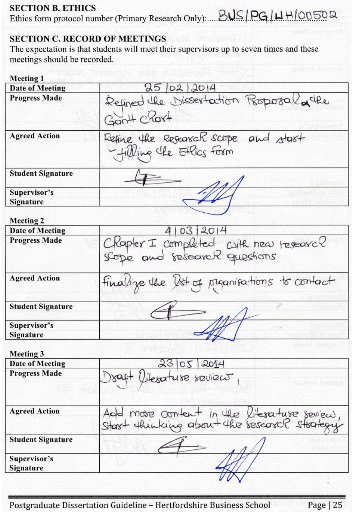 SECTION B. ETHICS
Ethics form protocol number (Primary Research Only): BUS/PG/UH/00502
SECTION C. RECORD OF MEETINGS
The expectation is that students will meet their supervisors up to seven times and these
meetings should be recorded.
Meeting 1
Date of Meeting 25/02/2014
Progress Made Refined the Dissertation Proposal & the
Gantt Chart
Agreed Action Refine the Research scope and start
filling the Ethics form
Student Signature
Supervisor's
Signature
Meeting 2
Date of Meeting 4/03/2014
Progress Made Chapter I completed with new research
scope and research questions
Agreed Action Finalize the list of organisations to contact
Student Signature
Supervisor's
Signature
Meeting 3
Date of Meeting 23/05/2014
Progress Made Draft literature review,
Agreed Action Add more content in the literature review,
Start thinking about the research strategy
Student Signature
Supervisor's
Signature
Postgraduate Dissertation Guideline – Hertfordshire Business School Page | 25